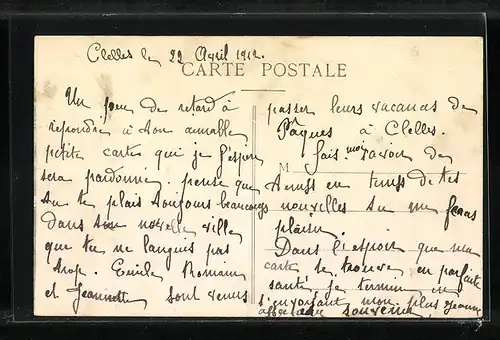 Clelles le 22 Avril 1912.
CARTE POSTALE
Un peu de retard à
repondre à ton aimable
petite cartes qui je l'espere
sera pardonné. pense que
tu te plais toujours beaucoup
dans ton nouvelle ville
que tu ne langues pas
trop. Emile Romain
et Jeannette sont venus
passer leurs vacances de
Pâques à Clelles.
M
fais-moi savoir de
temps en temps de tes
nouvelles tu me feras
plaisir.
Dans l'espoir que ma
carte te trouve en parfaite
santé je termine en
t'envoyant mon plus
souvenir